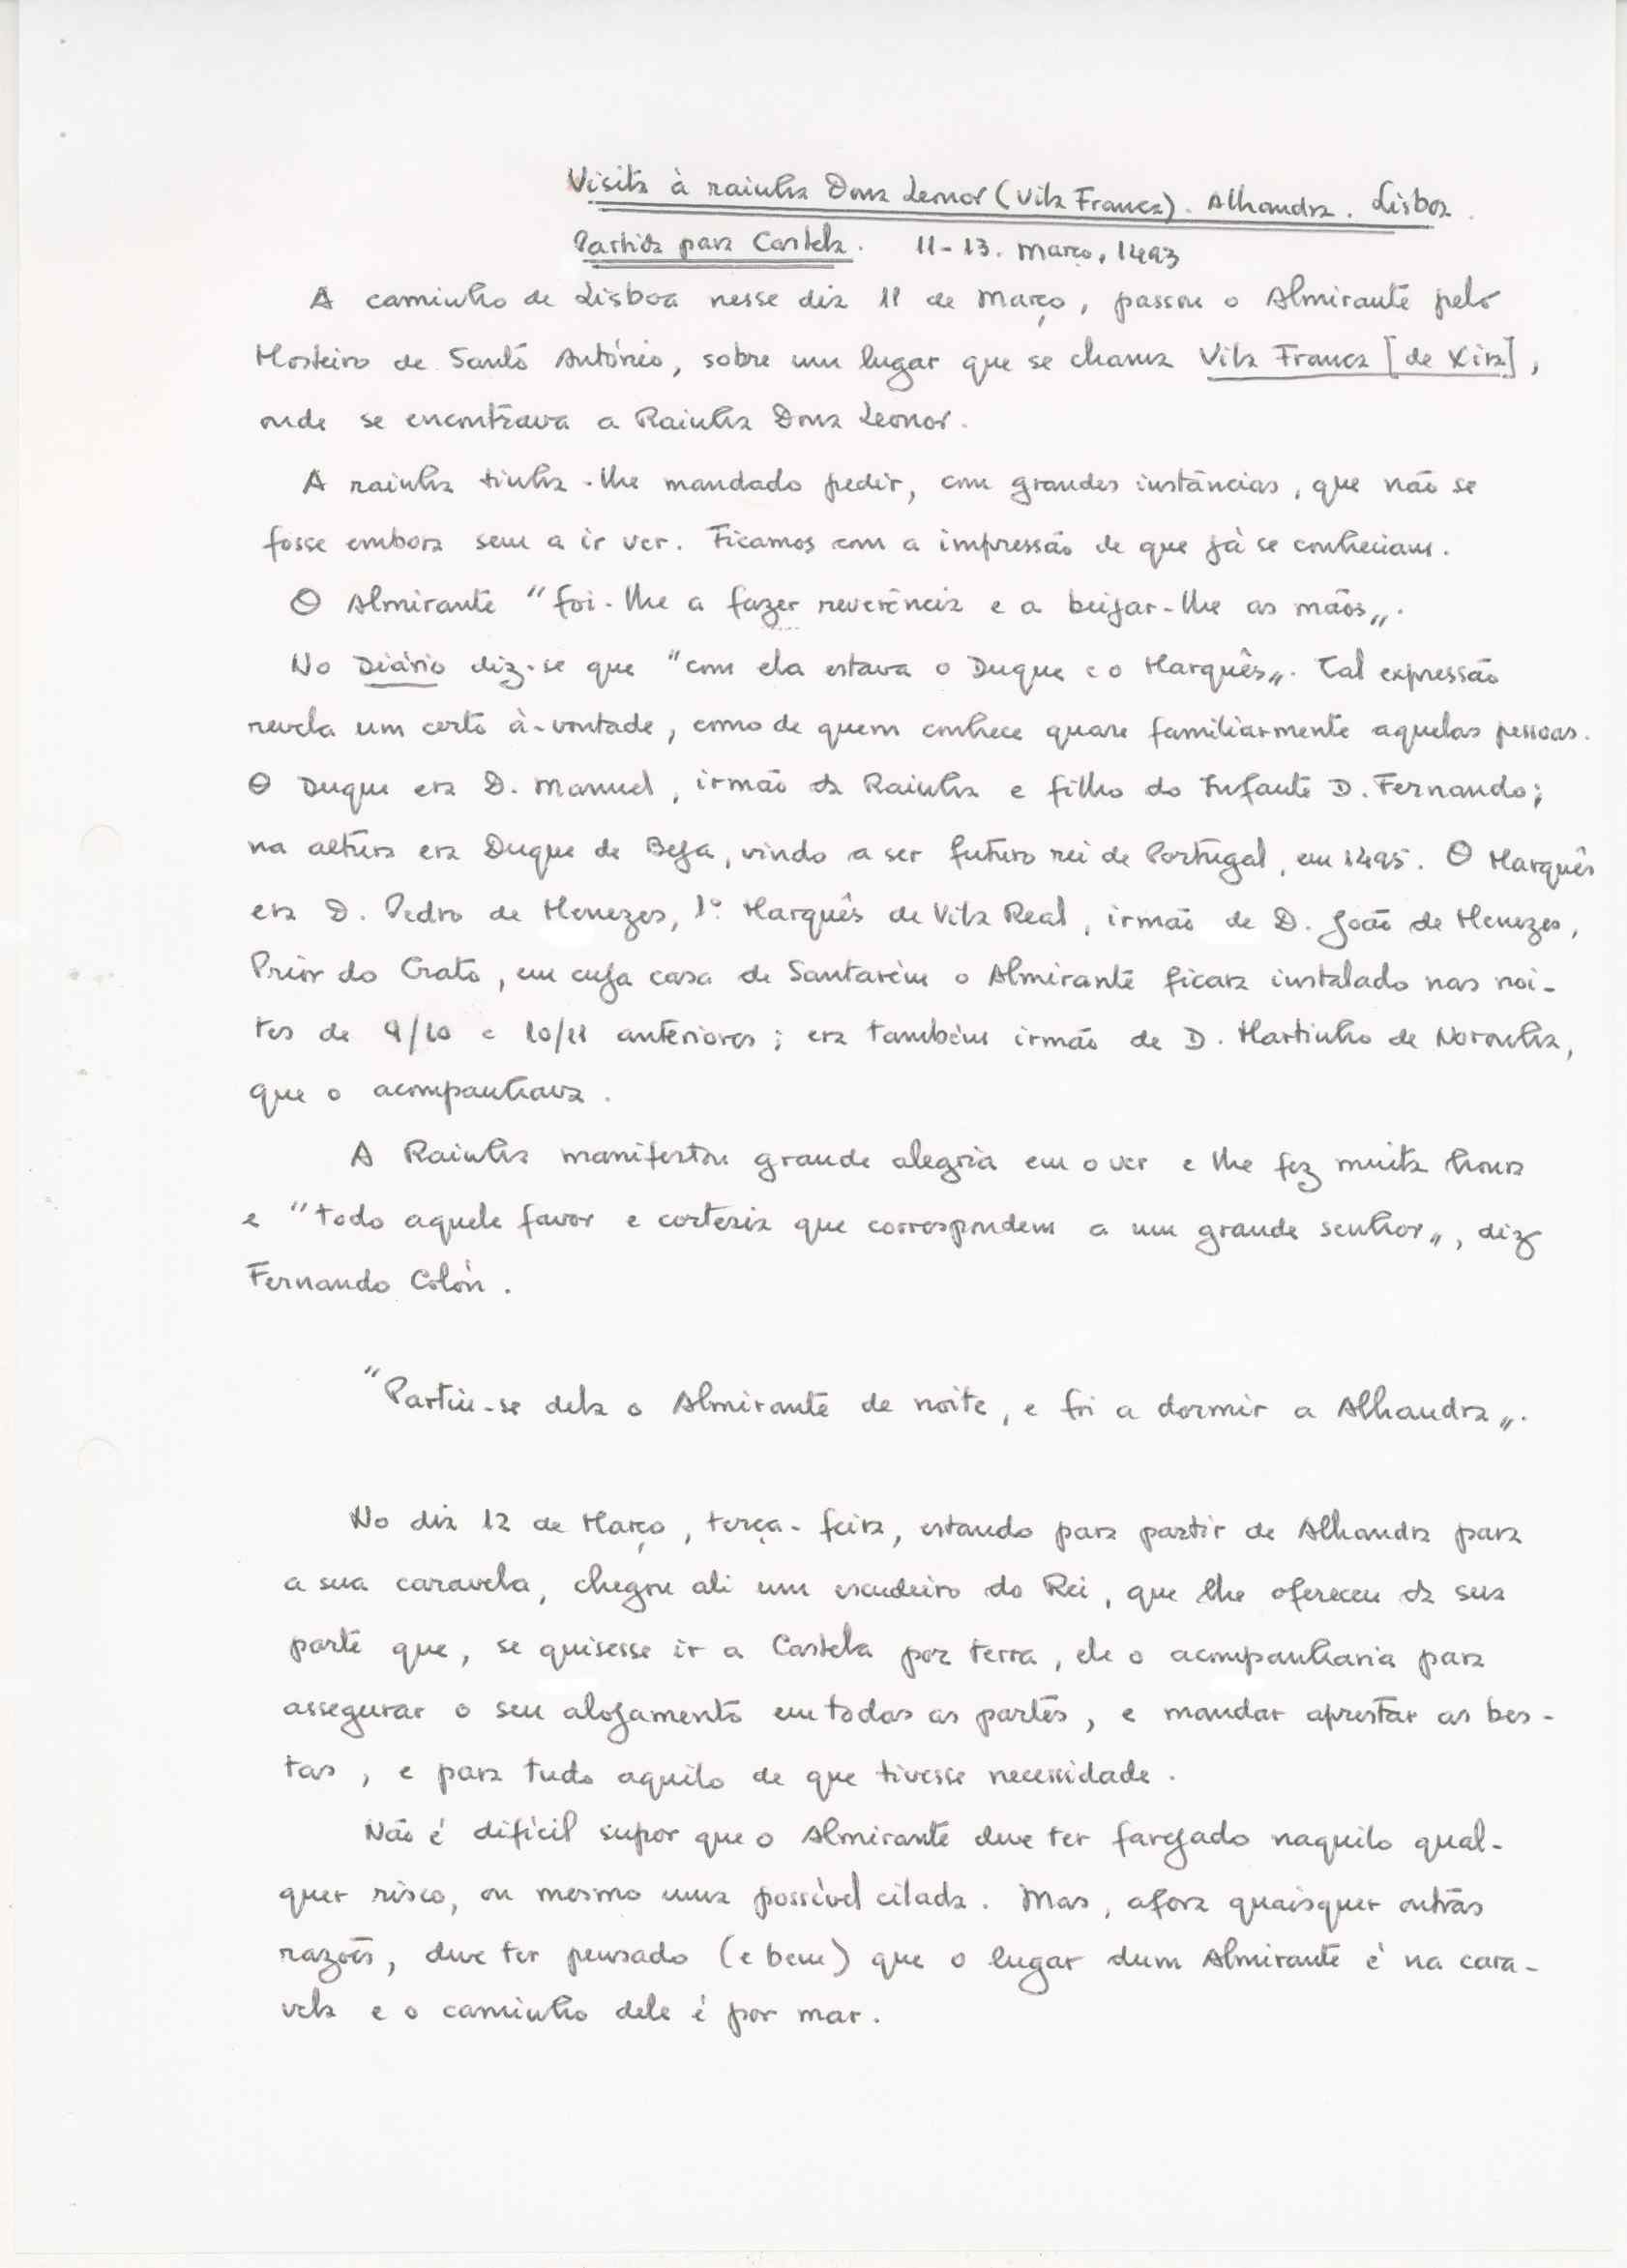 Visita à rainha Dona Leonor (Vila Franca). Alhandra. Lisboa.
Partida para Castela. 11-13. Março, 1493
A caminho de Lisboa nesse dia 11 de Março, passou o Almirante pelo
Mosteiro de Santo António, sobre um lugar que se chama Vila Franca [de Xira],
onde se encontrava a Rainha Dona Leonor.
A rainha tinha-lhe mandado pedir, com grandes instâncias, que não se
fosse embora sem a ir ver. Ficamos com a impressão de que já se conheciam.
O Almirante "foi-lhe a fazer reverência e a beijar-lhe as mãos".
No Diário diz-se que "com ela estava o Duque e o Marquês". Tal expressão
revela um certo à-vontade, como de quem conhece quase familiarmente aquelas pessoas.
O Duque era D. Manuel, irmão da Rainha e filho do Infante D. Fernando;
na altura era Duque de Beja, vindo a ser futuro rei de Portugal, em 1495. O Marquês
era D. Pedro de Menezes, 1º Marquês de Vila Real, irmão de D. João de Menezes,
Prior do Crato, em cuja casa de Santarém o Almirante ficara instalado nas noi-
tes de 9/10 e 10/11 anteriores; era também irmão de D. Martinho de Noronha,
que o acompanhava.
A Rainha manifestou grande alegria em o ver e lhe fez muita honra
e "todo aquele favor e cortesia que correspondem a um grande senhor", diz
Fernando Colón.
"Partiu-se dela o Almirante de noite, e foi a dormir a Alhandra".
No dia 12 de Março, terça-feira, estando para partir de Alhandra para
a sua caravela, chegou ali um escudeiro do Rei, que lhe ofereceu da sua
parte que, se quisesse ir a Castela por terra, ele o acompanharia para
assegurar o seu alojamento em todas as partes, e mandar aprestar as bes-
tas, e para tudo aquilo de que tivesse necessidade.
Não é difícil supor que o Almirante deve ter farejado naquilo qual-
quer risco, ou mesmo uma possível cilada. Mas, afora quaisquer outras
razões, deve ter pensado (e bem) que o lugar dum Almirante é na cara-
vela e o caminho dele é por mar.